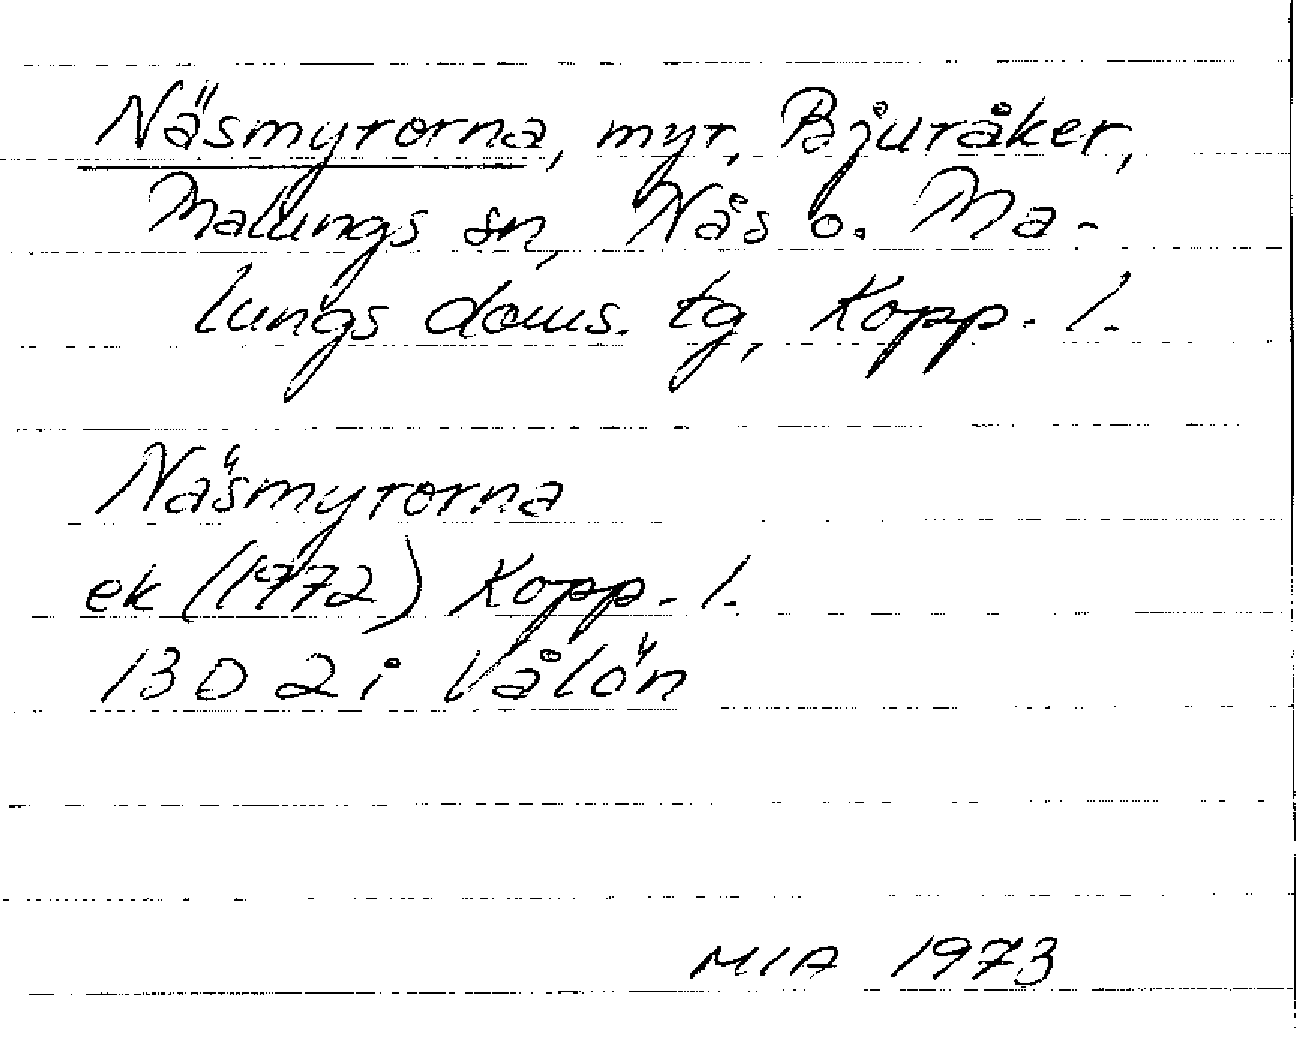 Näsmyrorna, myr, Bjuråker,
Malungs sn, Nås o. Ma-
lungs doms. tg, Kopp. l.
Näsmyrorna
ek (1972) Kopp. l.
13D 2i Vålön
MIA 1973